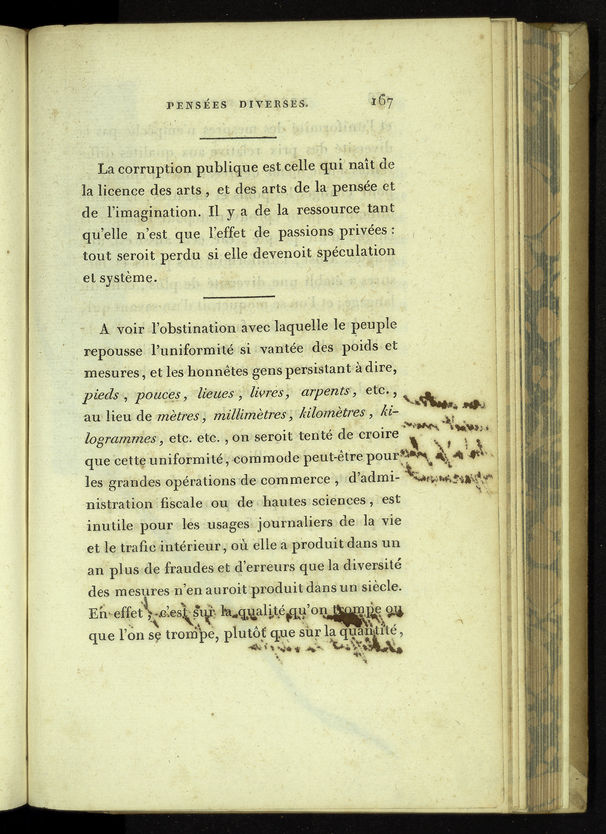 PENSÉES DIVERSES. 167
La corruption publique est celle qui naît de
la licence des arts, et des arts de la pensée et
de l'imagination. Il y a de la ressource tant
qu'elle n'est que l'effet de passions privées :
tout seroit perdu si elle devenoit spéculation
et système.
A voir l'obstination avec laquelle le peuple
repousse l'uniformité si vantée des poids et
mesures, et les honnêtes gens persistant à dire,
pieds, pouces, lieues, livres, arpents, etc.,
au lieu de mètres, millimètres, kilomètres, ki-
logrammes, etc. etc., on seroit tenté de croire
que cette uniformité, commode peut-être pour
les grandes opérations de commerce, d'admi-
nistration fiscale ou de hautes sciences, est
inutile pour les usages journaliers de la vie
et le trafic intérieur, où elle a produit dans un
an plus de fraudes et d'erreurs que la diversité
des mesures n'en auroit produit dans un siècle.
En effet, c'est sur la qualité qu'on trompe ou
que l'on se trompe, plutôt que sur la quantité,